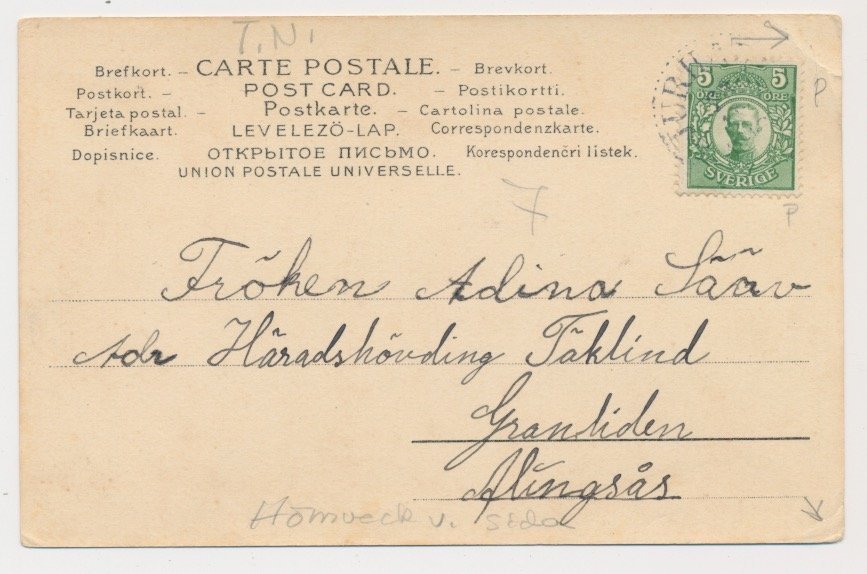 T.N.
Brefkort. – CARTE POSTALE. – Brevkort.
Postkort. – POST CARD. – Postikortti.
Tarjeta postal. – Postkarte. – Cartolina postale.
Briefkaart. LEVELEZÖ-LAP. Correspondenzkarte.
Dopisnice. ОТКРЫТОЕ ПИСЬМО. Korespondenčri listek.
UNION POSTALE UNIVERSELLE.
5 5
ÖRE ÖRE
SVERIGE
P
P
7
Fröken Adina Sääv
Adr Häradshövding Täklind
Granliden
Alingsås
Hörnveck v. sida